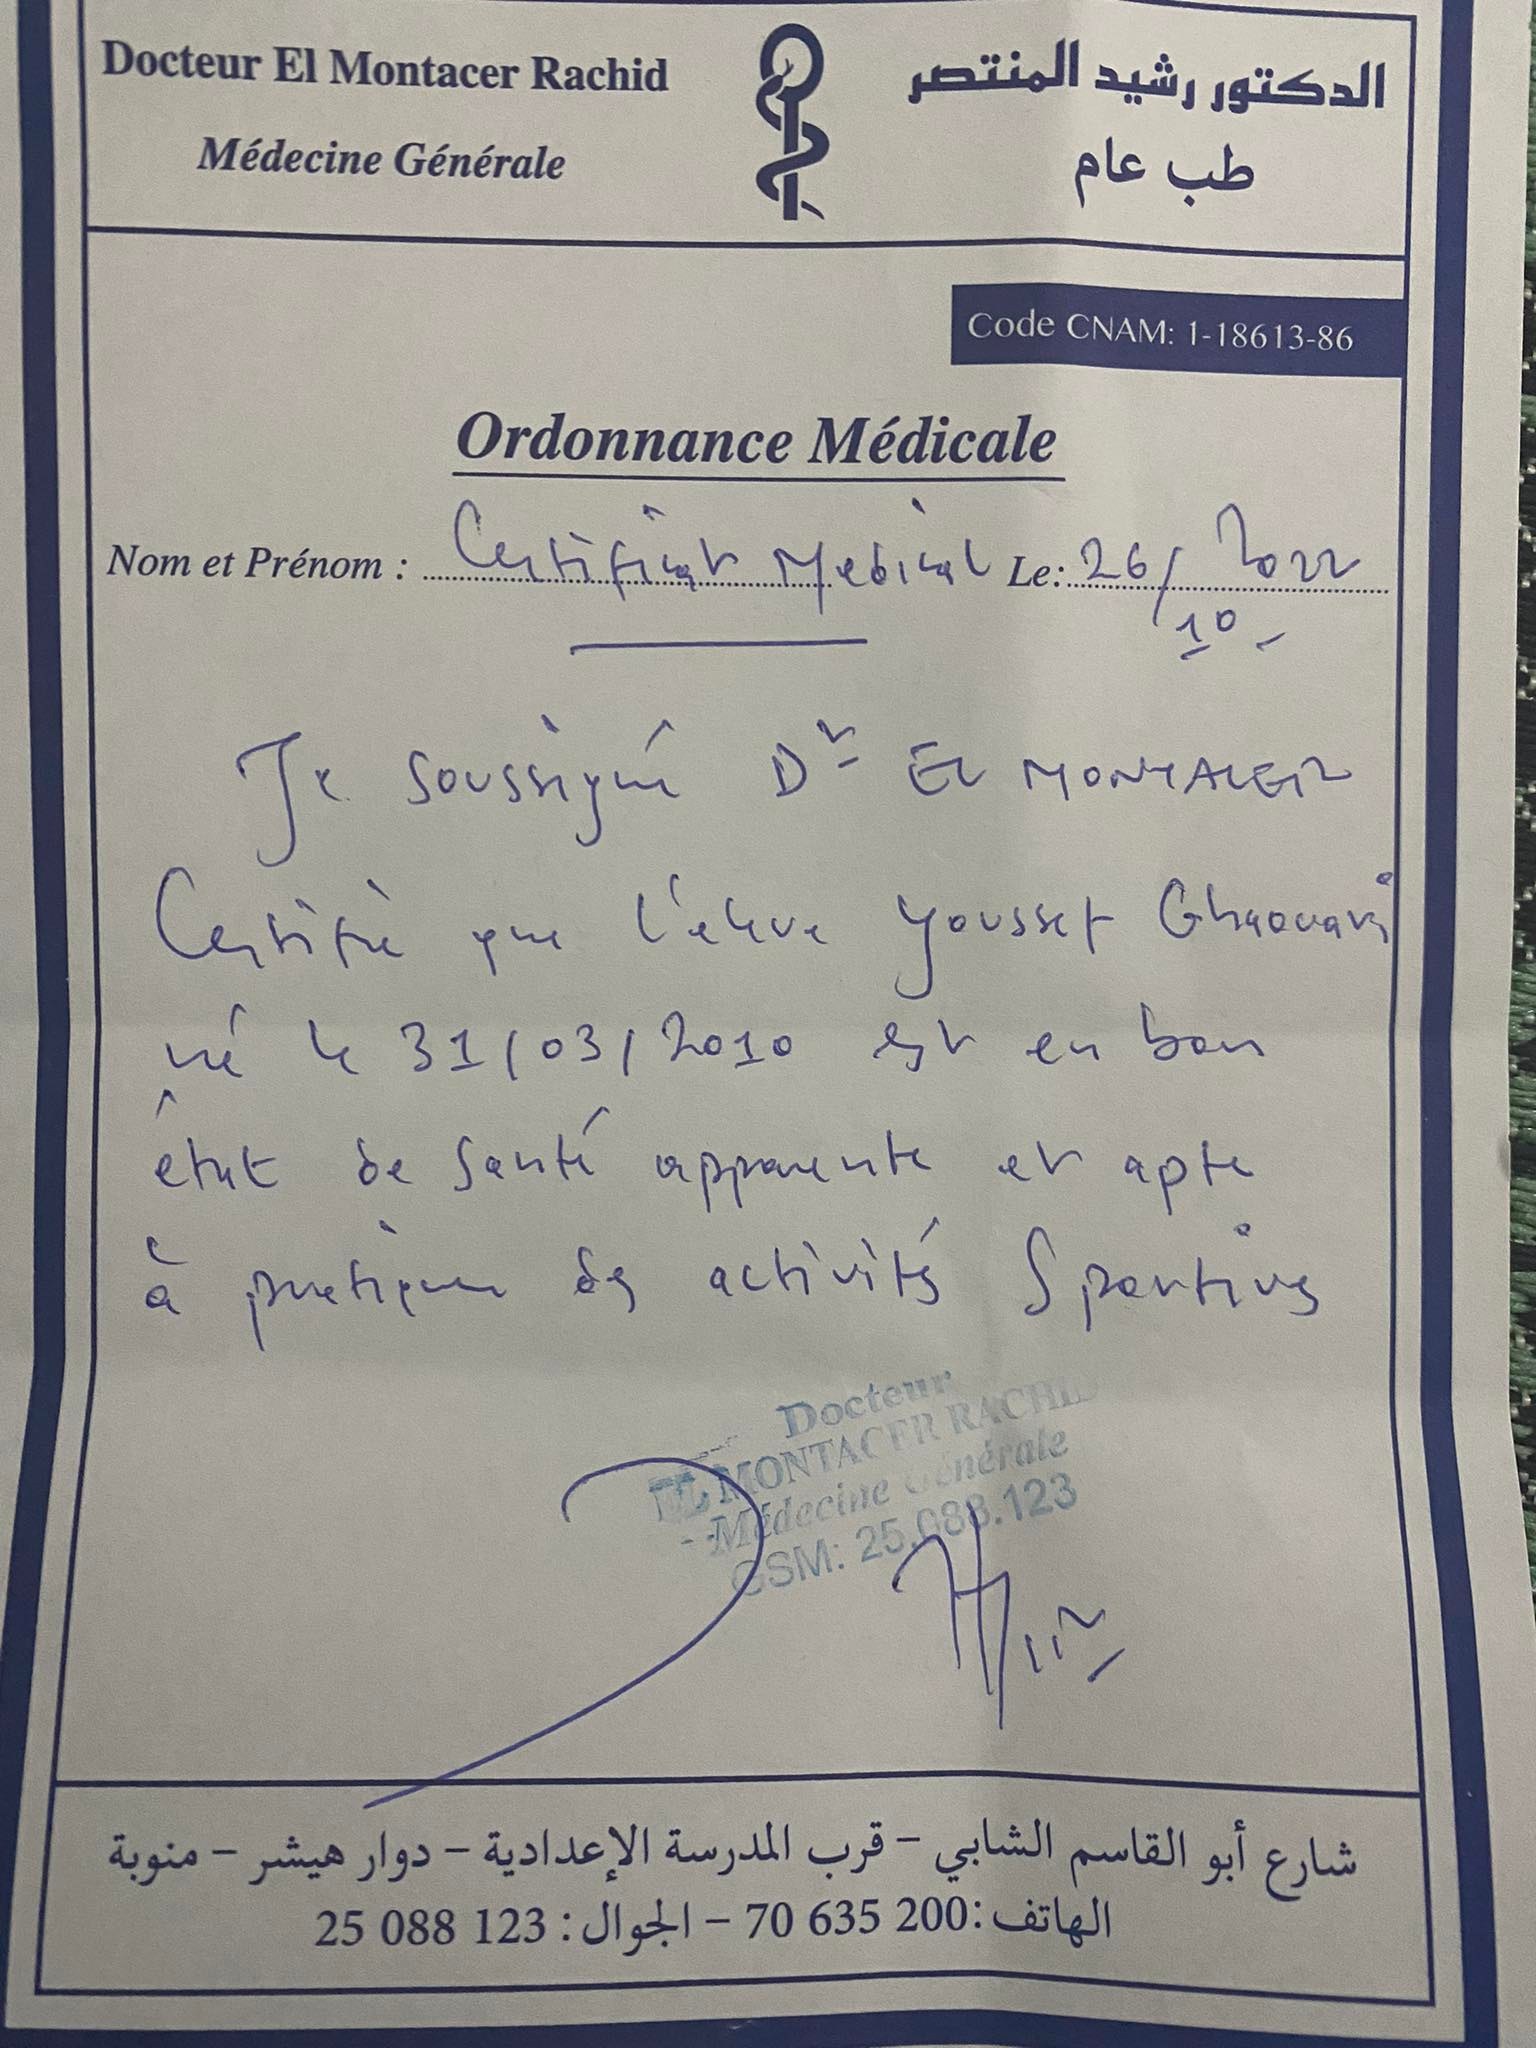 Docteur El Montacer Rachid
Médecine Générale
الدكتور رشيد المنتصر
طب عام
Code CNAM: 1-18613-86
Ordonnance Médicale
Nom et Prénom : Certificat Medical Le: 26/10/2022
Je soussigné Dr EL MONTACER
Certifie que l'élève Youssef Ghaouari
né le 31/03/2010 est en bon
état de santé apparente et apte
à pratiquer des activités Sportives
Docteur
EL MONTACER RACHID
Médecine Générale
GSM: 25.088.123
شارع أبو القاسم الشابي - قرب المدرسة الإعدادية - دوار هيشر - منوبة
الهاتف: 70 635 200 - الجوال: 25 088 123